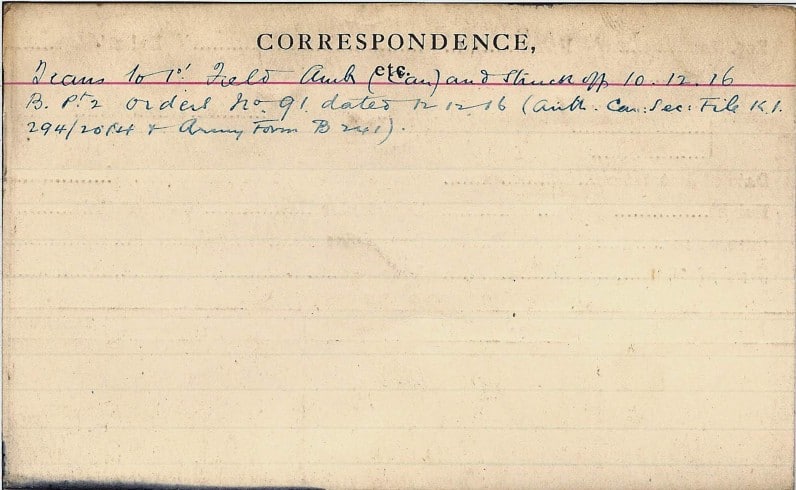 CORRESPONDENCE,
etc.
Trans to 1st Field Amb (Can) and Struck off 10.12.16
B. Pt 2 orders No. 91. dated 12 12 16 (Auth. Can: Sec: File K.1.
294/2014 & Army Form B 241).